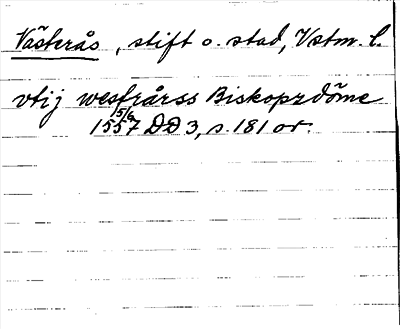 Västerås, stift o. stad, Vstm. l.
vtij wesfrårss Biskopzdöme
15/6
1557 DD 3, s. 181 or.